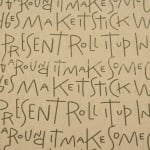 LES MAKE IT STICK W
PRESENT ROLL IT UP IN
AROUND IT MAKE SOME
LES MAKE IT STICK W
PRESENT ROLL IT UP IN
AROUND IT MAKE SOME